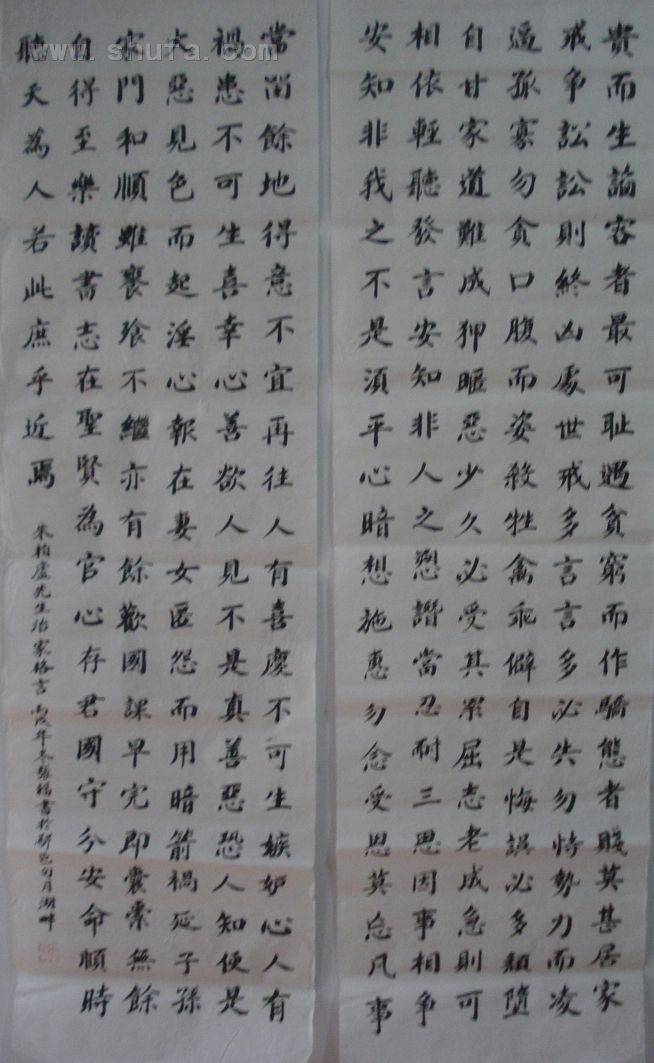 貴而生諂容者最可恥遇貧窮而作驕態者賤莫甚居家
戒爭訟訟則終凶處世戒多言言多必失勿恃勢力而凌
逼孤寡勿貪口腹而姿殺牲禽乖僻自是悔誤必多頹墮
自甘家道難成狎暱惡少久必受其累屈志老成急則可
相依輕聽發言安知非人之愬譖當忍耐三思因事相爭
安知非我之不是須平心暗想施惠勿念受恩莫忘凡事
當留餘地得意不宜再往人有喜慶不可生嫉妒心人有
禍患不可生喜幸心善欲人見不是真善惡恐人知便是
大惡見色而起淫心報在妻女匿怨而用暗箭禍延子孫
家門和順雖饔飧不繼亦有餘歡國課早完即囊橐無餘
自得至樂讀書志在聖賢為官心存君國守分安命順時
聽天為人若此庶乎近焉
朱柏廬先生治家格言 丙戌年冬 書於 月湖畔
www.shufa.com